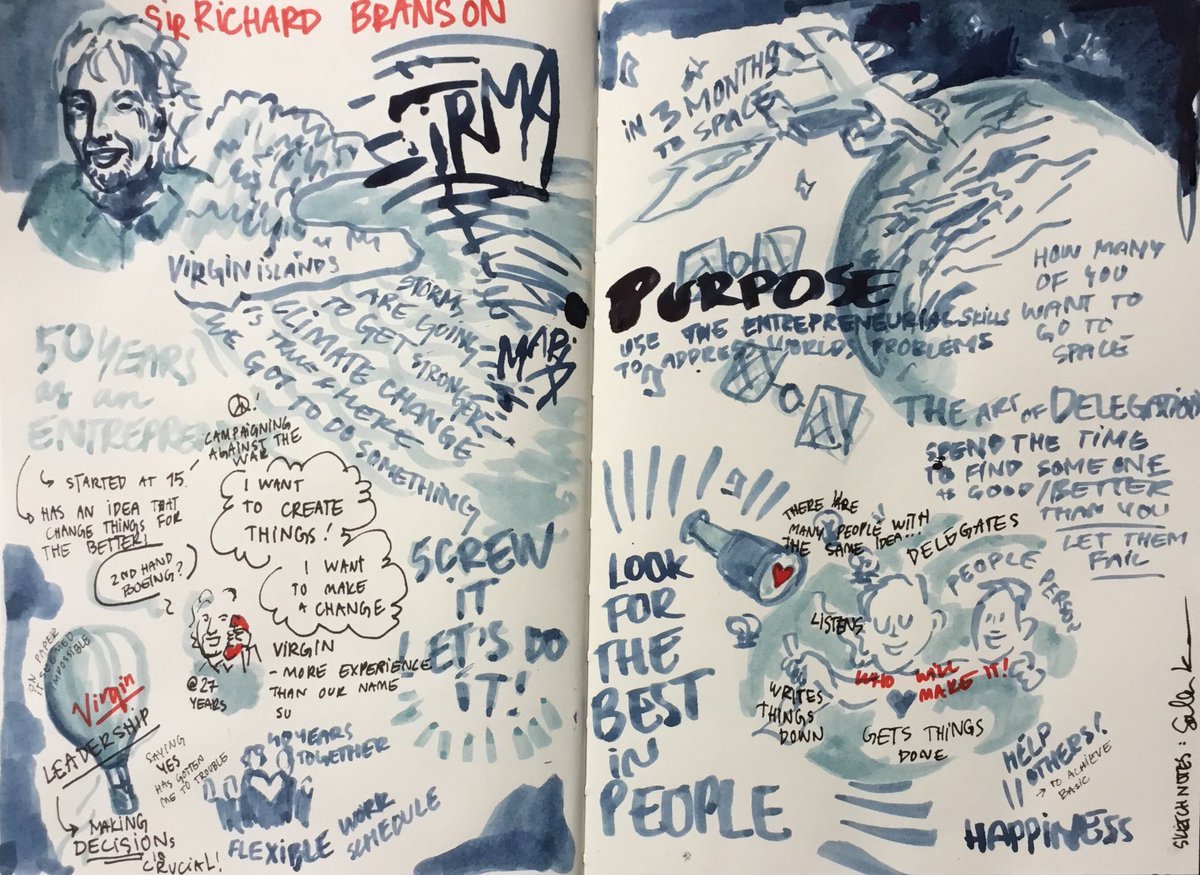 SIR RICHARD BRANSON
IRMA
VIRGIN ISLANDS
STORMS
ARE GOING
TO GET
STRONGER
CLIMATE CHANGE
IS TRUE & HERE
WE GOT TO DO
SOMETHING
MARIA
50 YEARS
as an
ENTREPREN
STARTED AT 15
HAS AN IDEA THAT
CHANGE THINGS FOR
THE BETTER!
CAMPAIGNING
AGAINST THE
WAR
I WANT
TO CREATE
THINGS!
I WANT
TO MAKE
A CHANGE
2ND HAND
BOEING?
@27
YEARS
VIRGIN
- MORE EXPERIENCE
THAN OUR NAME
SU
SCREW
IT
LET'S DO
IT!
ON PAPER
IT SEEMED
IMPOSSIBLE
Virgin
LEADERSHIP
MAKING
DECISIONS
IS
CRUCIAL!
SAYING
YES
HAS GOTTEN
ME TO TROUBLE
40 YEARS
TOGETHER
FLEXIBLE WORK
SCHEDULE
IN 3 MONTHS
TO SPACE
PURPOSE
USE THE ENTREPRENEURING SKILLS
TO ADDRESS WORLDS PROBLEMS
HOW MANY
OF YOU
WANT TO
GO TO
SPACE
THE ART OF DELEGATION
SPEND THE TIME
TO FIND SOME ONE
AS GOOD/BETTER
THAN YOU
LET THEM
FAIL
LOOK
FOR
THE
BEST
IN
PEOPLE
THERE ARE
MANY PEOPLE WITH
THE SAME IDEA...!
DELEGATES
PEOPLE PERSON
LISTENS
WRITES
THINGS
DOWN
WHO WILL
MAKE IT!
GETS THINGS
DONE
HELP
OTHERS!
→ TO ACHIEVE
BASIC
HAPPINESS
SKETCHNOTES: